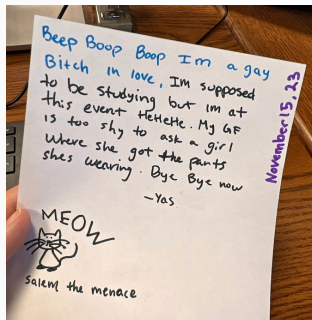 Beep Boop Boop Im a gay
Bitch in love, Im supposed
to be studying but im at
this event HeHeHe. My GF
is too shy to ask a girl
where she got the pants
shes wearing. Bye Bye now
-Yas
November 15, 23
MEOW
Salem the menace